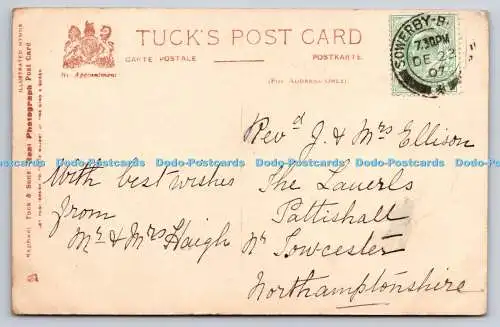 TUCK'S POST CARD
CARTE POSTALE
POSTKARTE
By Appointment
(FOR ADDRESS ONLY)
SOWERBY-B
7.30PM
DE 23
07
ILLUSTRATED HYMNS
Post Card
RAPHAEL TUCK & SONS' "REAL PHOTOGRAPH"
With best wishes
from
Mr & Mrs Haigh
Revd J. & Mrs Ellison
The Lauerls
Pattishall
Nr Towcester
Northamptonshire
Dodo-Postcards Dodo-Postcards Dodo-Postcards Dodo-Postcards Dodo-Postcards